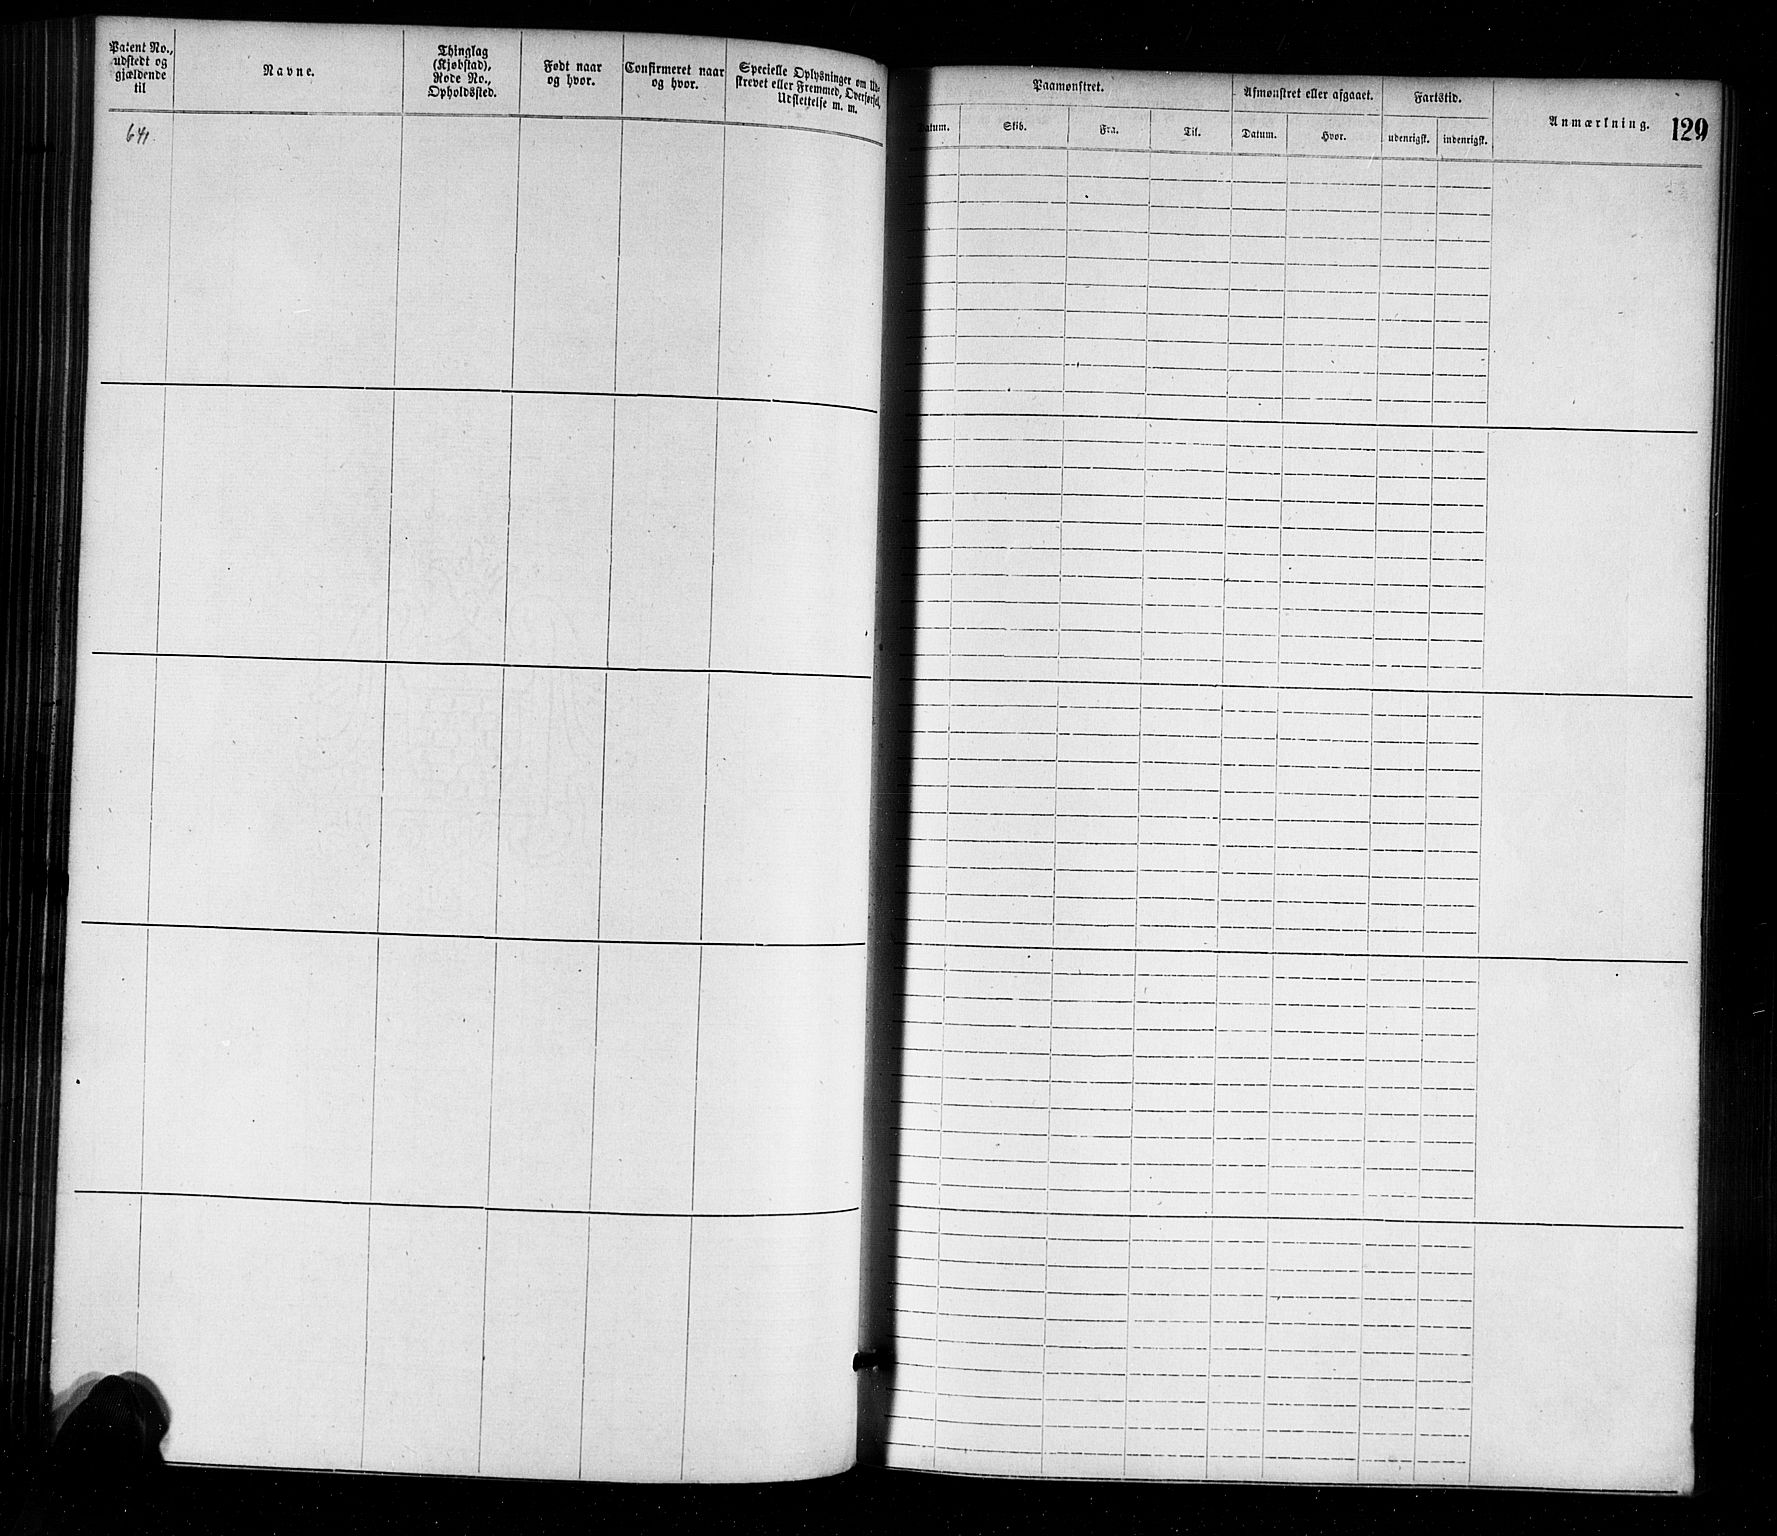 Patent No.,
udstedt og
gjældende
til
Navne.
Thinglag
(Kjøbstad),
Rode No.,
Opholdssted.
Født naar
og hvor.
Confirmeret naar
og hvor.
Specielle Oplysninger om Ud-
skrevet eller Fremmed, Overførsel,
Udslettelse m. m.
641
Paamønstret.
Afmønstret eller afgaaet.
Fartstid.
Anmærkning.
129
Datum.
Skib.
Fra.
Til.
Datum.
Hvor.
udenrigsk.
indenrigsk.